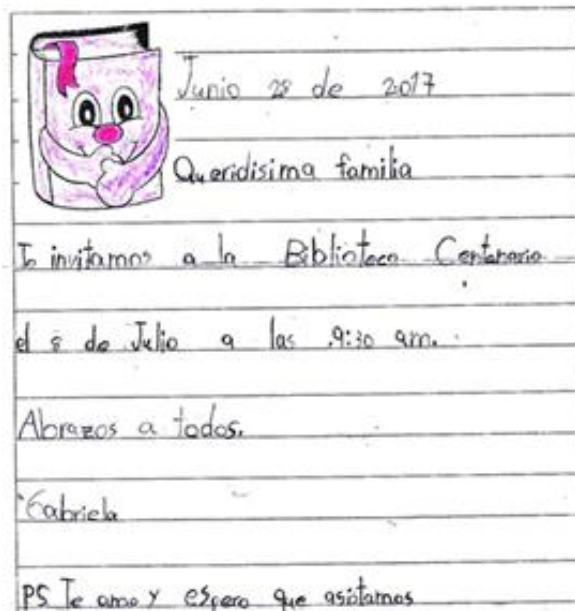 Junio 28 de 2017
Queridisima familia
Te invitamos a la Biblioteca Centenario
el 8 de Julio a las 9:30 am.
Abrazos a todos.
Gabriela
PS Te amo y espero que asistamos